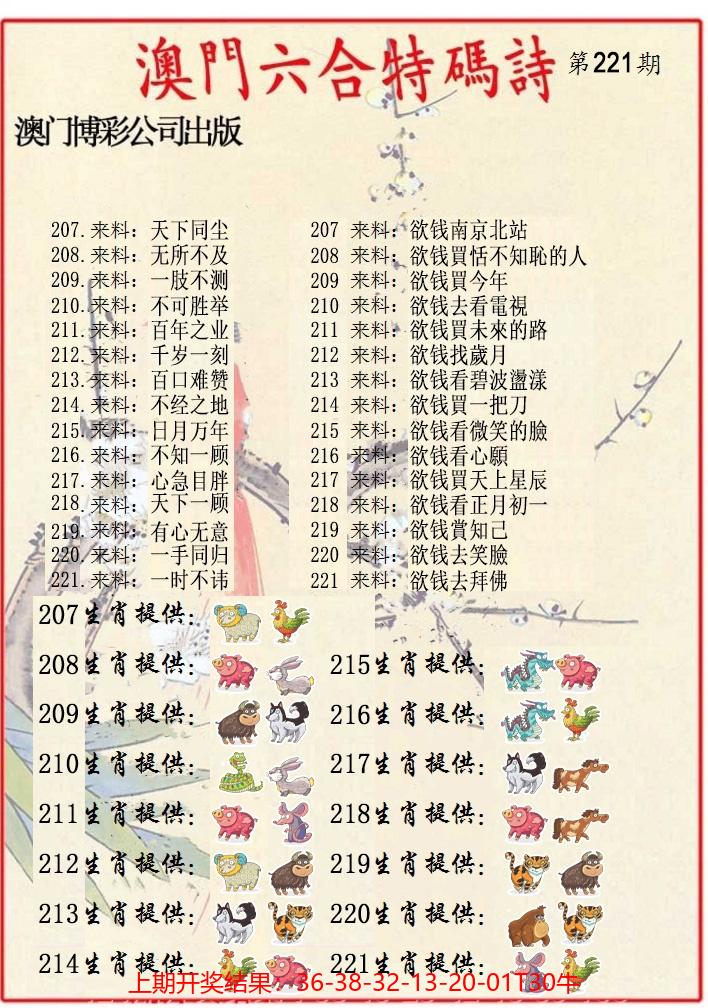 澳門六合特碼詩 第221期
澳门博彩公司出版
207.来料：天下同尘
208.来料：无所不及
209.来料：一肢不测
210.来料：不可胜举
211.来料：百年之业
212.来料：千岁一刻
213.来料：百口难赞
214.来料：不经之地
215.来料：日月万年
216.来料：不知一顾
217.来料：心急目胖
218.来料：天下一顾
219.来料：有心无意
220.来料：一手同归
221.来料：一时不讳
207 来料：欲钱南京北站
208 来料：欲钱買恬不知恥的人
209 来料：欲钱買今年
210 来料：欲钱去看電視
211 来料：欲钱買未來的路
212 来料：欲钱找歲月
213 来料：欲钱看碧波盪漾
214 来料：欲钱買一把刀
215 来料：欲钱看微笑的臉
216 来料：欲钱看心願
217 来料：欲钱買天上星辰
218 来料：欲钱看正月初一
219 来料：欲钱賞知己
220 来料：欲钱去笑臉
221 来料：欲钱去拜佛
207生肖提供：
208生肖提供：
209生肖提供：
210生肖提供：
211生肖提供：
212生肖提供：
213生肖提供：
214生肖提供：
215生肖提供：
216生肖提供：
217生肖提供：
218生肖提供：
219生肖提供：
220生肖提供：
221生肖提供：
上期开奖结果：36-38-32-13-20-01T30牛